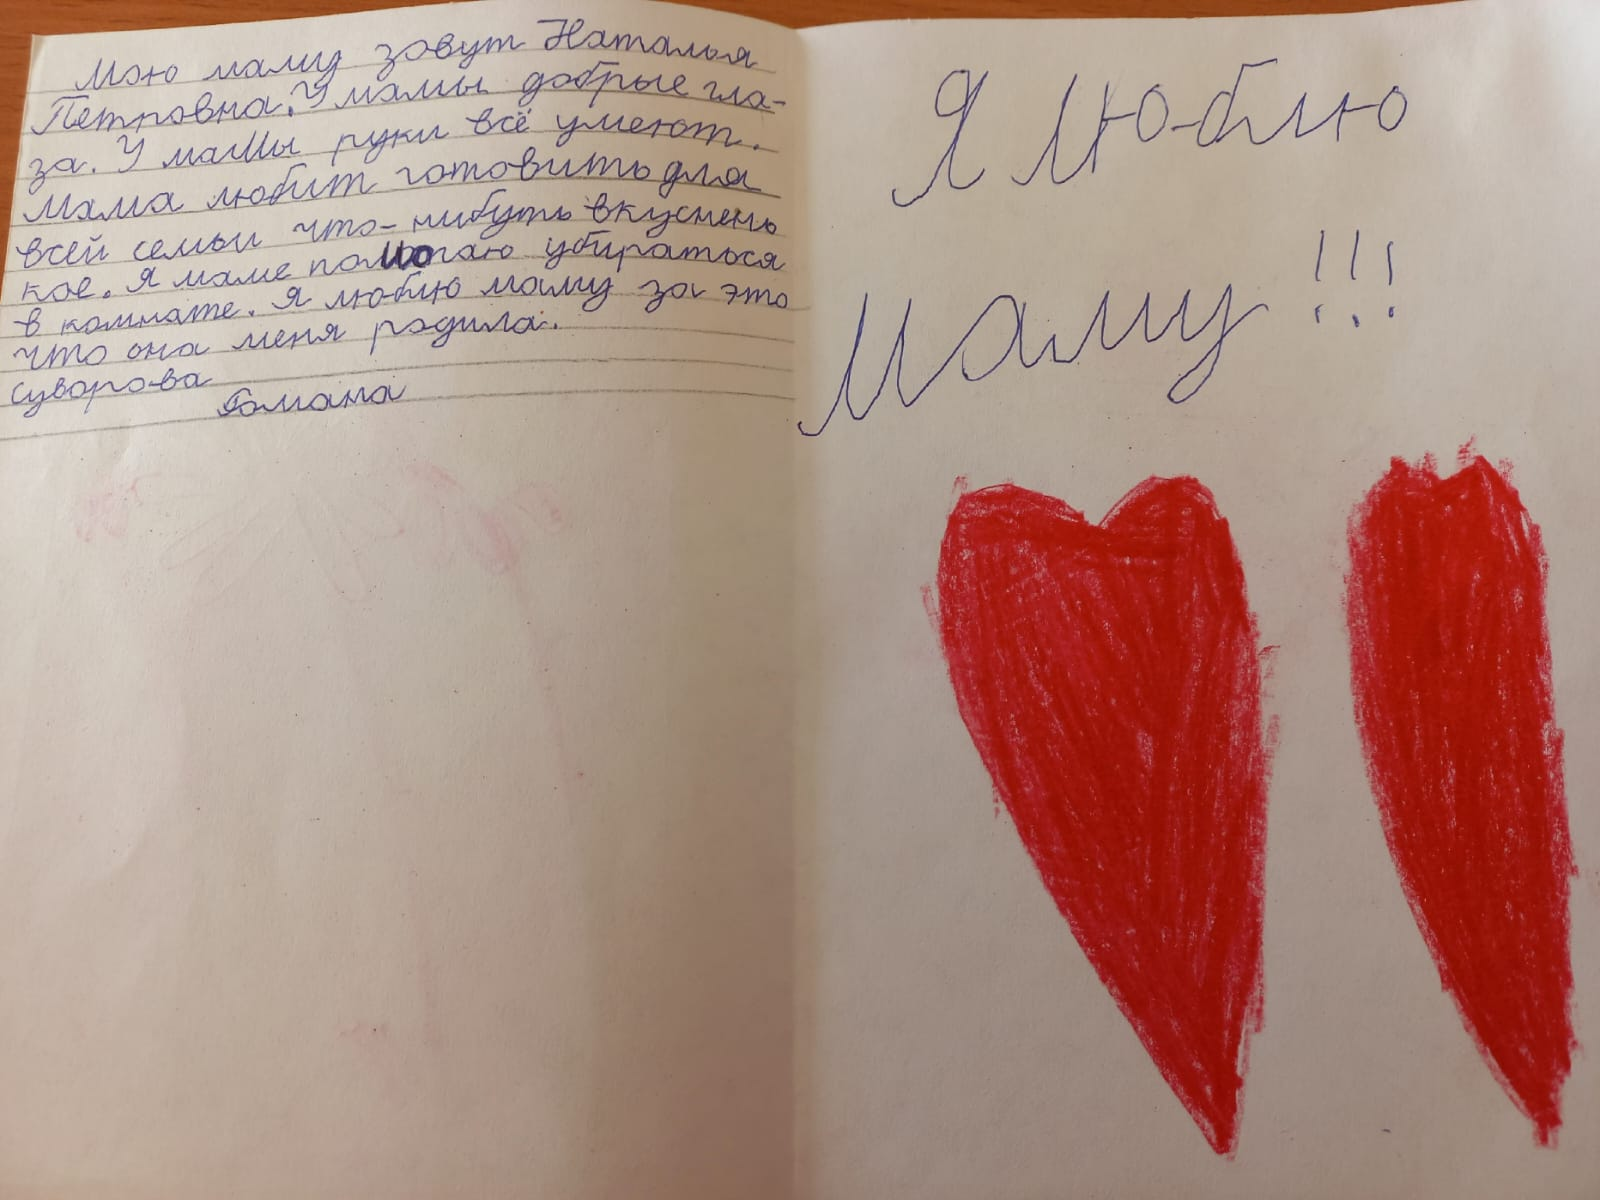 Мою маму зовут Наталья
Петровна. У мамы добрые гла-
за. У мамы руки всё умеют.
Мама любит готовить для
всей семьи что-нибуть вкуснень
кое. Я маме помогаю убираться
в комнате. Я люблю маму за это
что она меня родила.
Суворова
Романа
Я люблю
Маму!!!